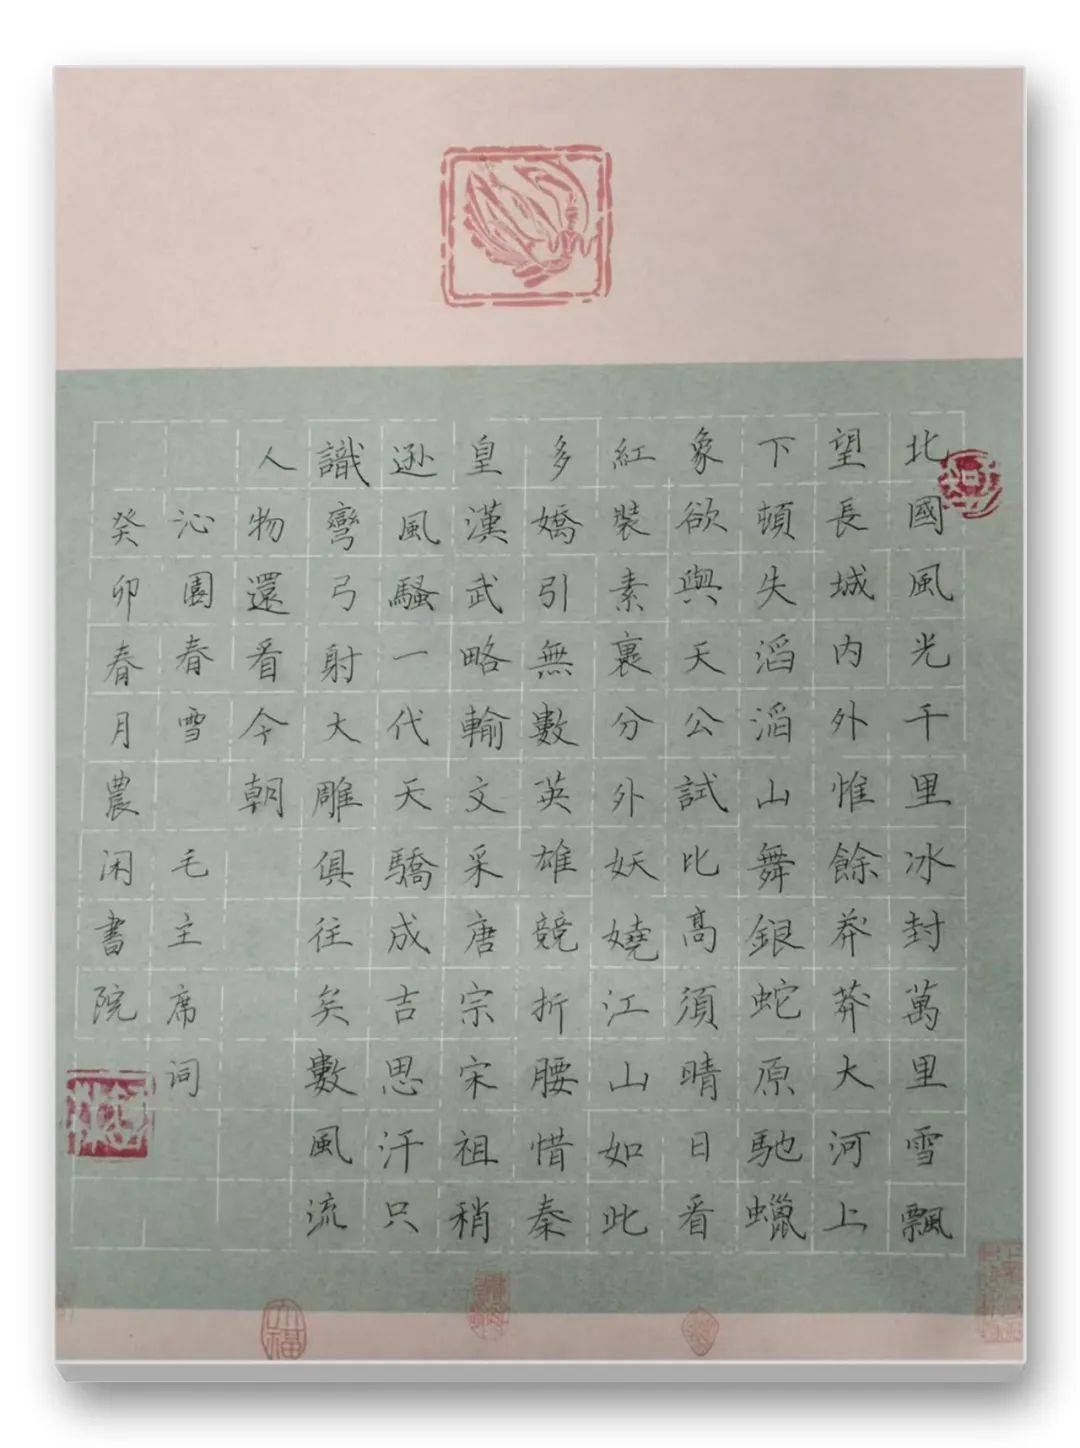 北國風光千里冰封萬里雪飄
望長城内外惟餘莽莽大河上
下頓失滔滔山舞銀蛇原馳蠟
象欲與天公試比高須晴日看
紅裝素裹分外妖嬈江山如此
多嬌引無數英雄競折腰惜秦
皇漢武略輸文采唐宗宋祖稍
逊風騷一代天驕成吉思汗只
識彎弓射大雕俱往矣數風流
人物還看今朝
沁園春雪 毛主席词
癸卯春月農闲書院